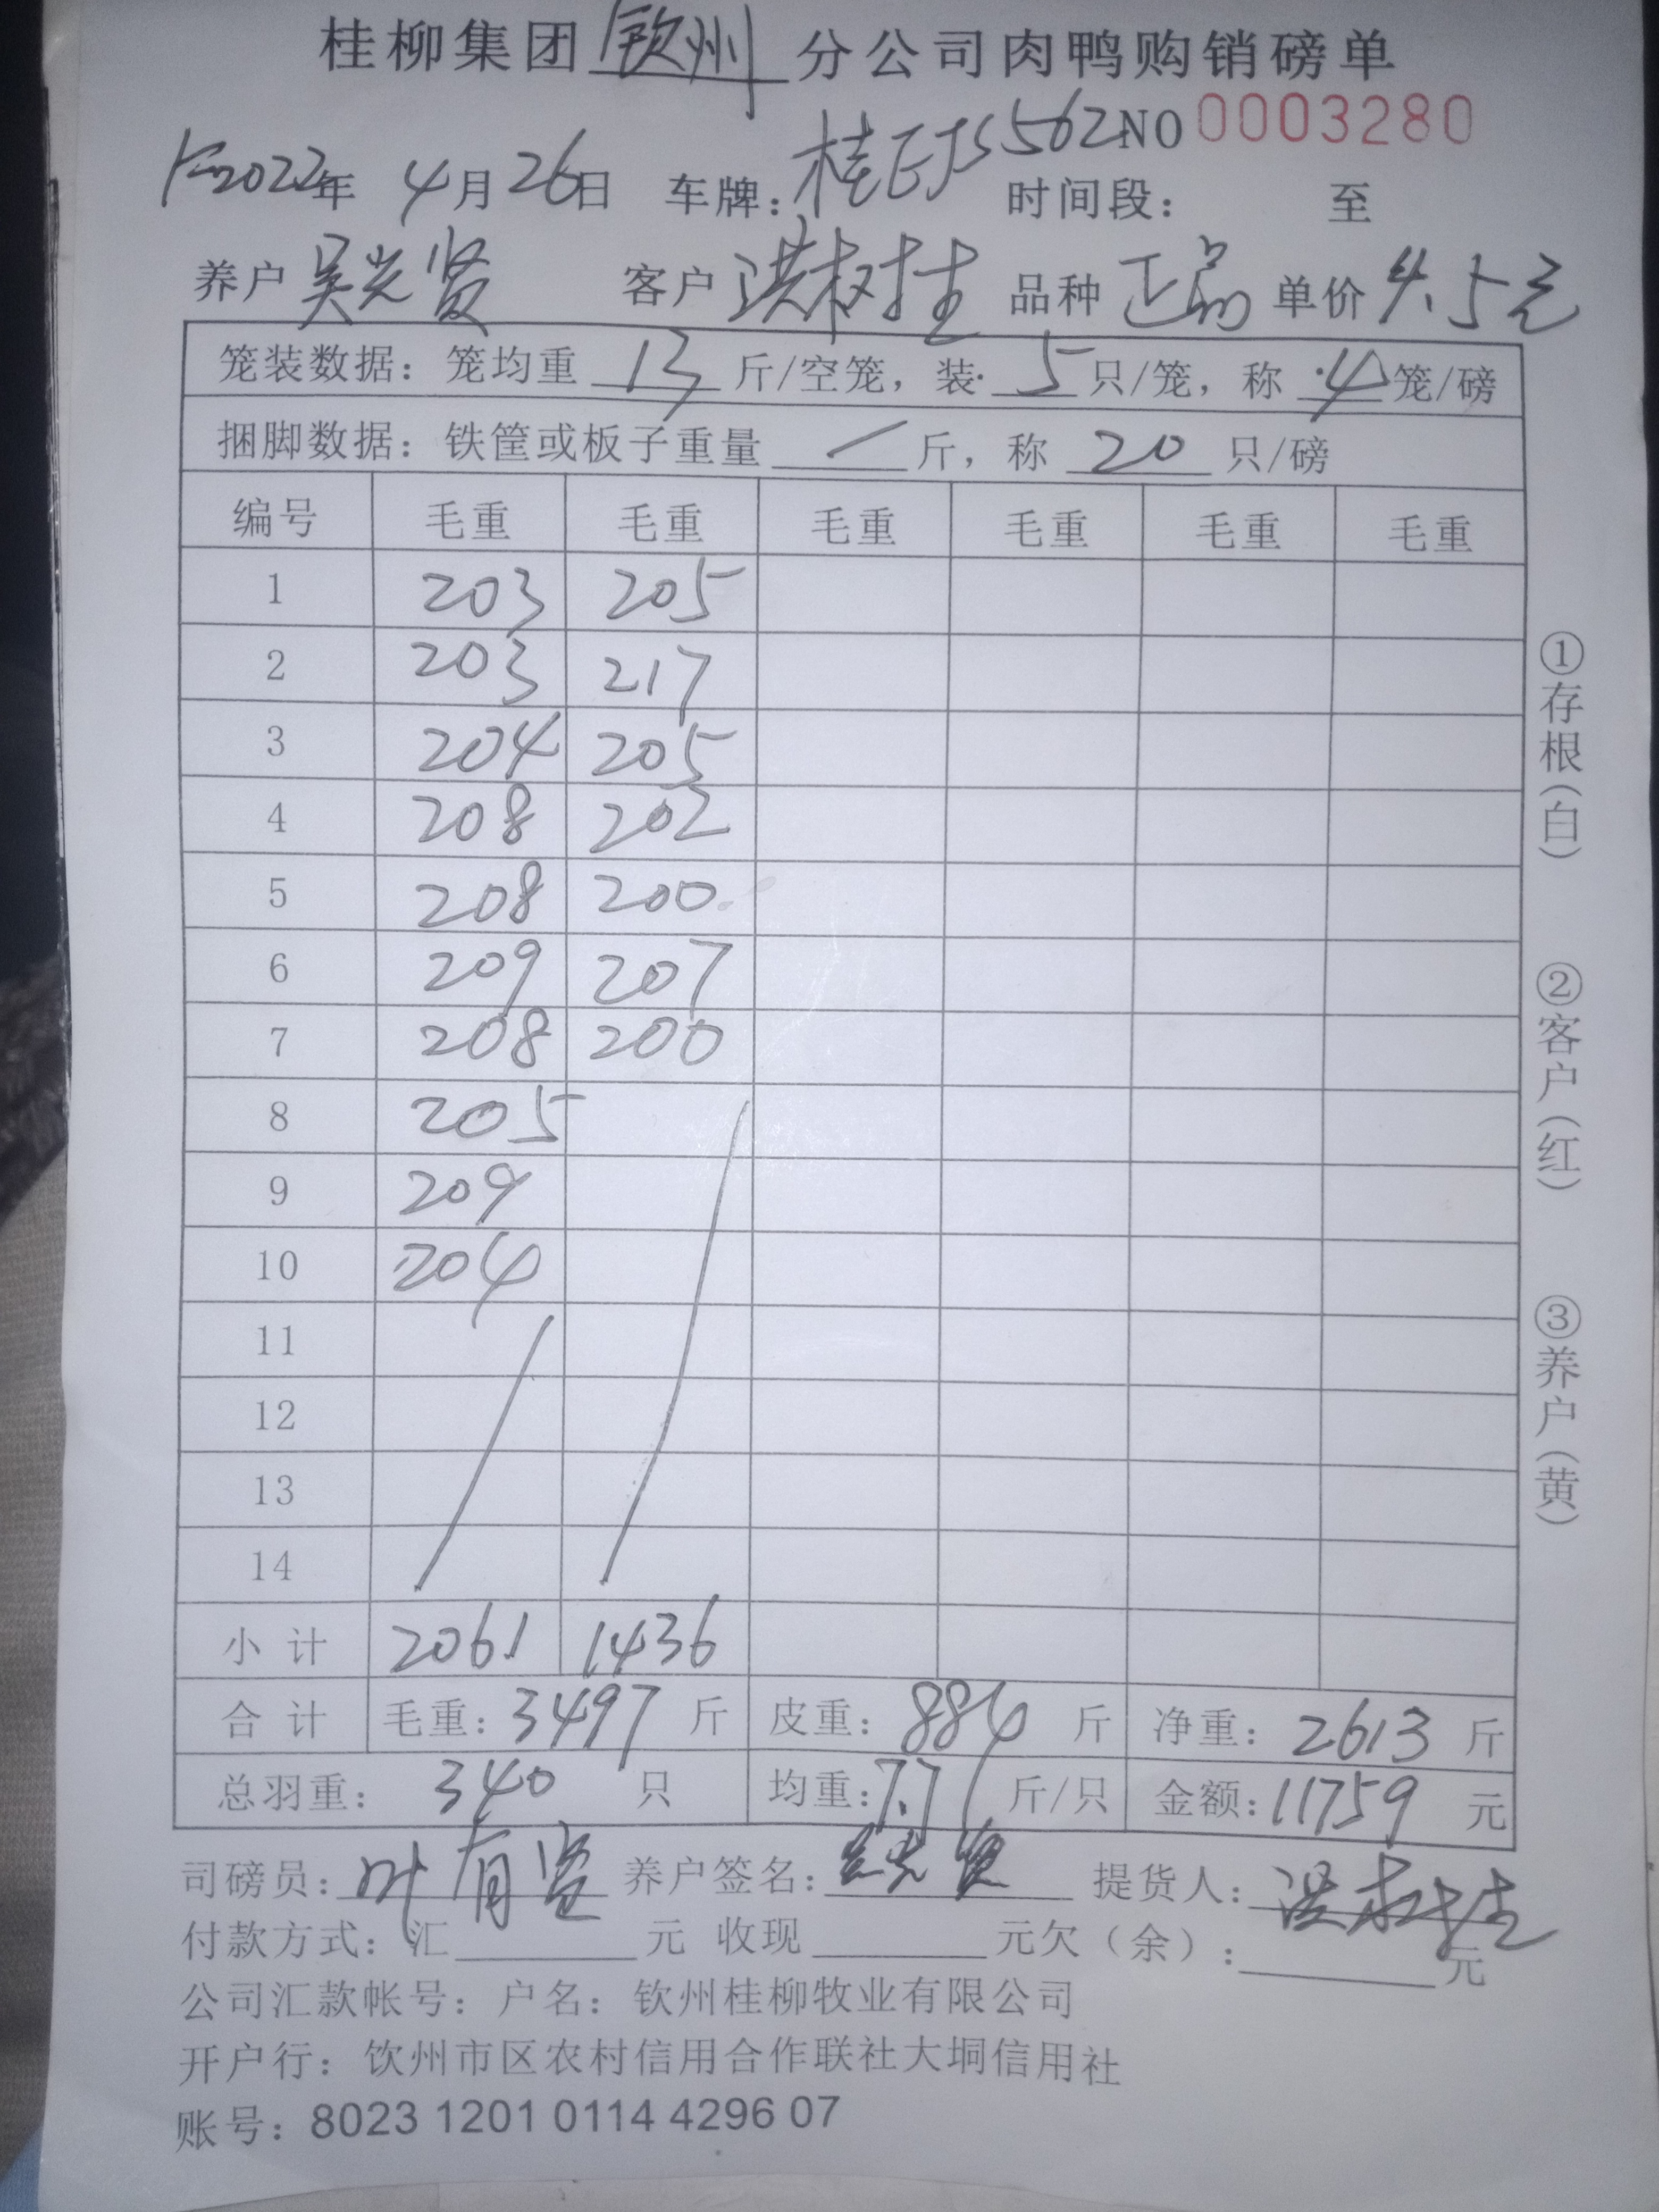 桂柳集团钦州分公司肉鸭购销磅单
2022年 4月26日 车牌:桂 562 NO 0003280
时间段: 至
养户 吴光贤 客户 洪树生 品种 正品 单价 4.5元
笼装数据:笼均重 13 斤/空笼,装 5 只/笼,称 4 笼/磅
捆脚数据:铁筐或板子重量 / 斤,称 20 只/磅
编号 毛重 毛重 毛重 毛重 毛重 毛重
1 203 205
2 203 217
3 204 205
4 208 202
5 208 200
6 209 207
7 208 200
8 205
9 209
10 204
11
12
13
14
小计 2061 1436
合计 毛重:3497 斤 皮重:884 斤 净重:2613 斤
总羽重: 340 只 均重:7.7 斤/只 金额:11759 元
司磅员:叶有 养户签名:吴光贤 提货人:洪树生
付款方式:汇 元 收现 元欠(余): 元
公司汇款帐号:户名:钦州桂柳牧业有限公司
开户行:饮州市区农村信用合作联社大垌信用社
账号:8023 1201 0114 4296 07
①存根(白)
②客户(红)
③养户(黄)